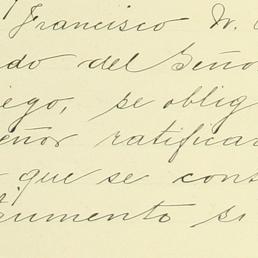 Francisco N.
do del Seño
iego, se oblig
eñor ratificar
que se cont
gumento si